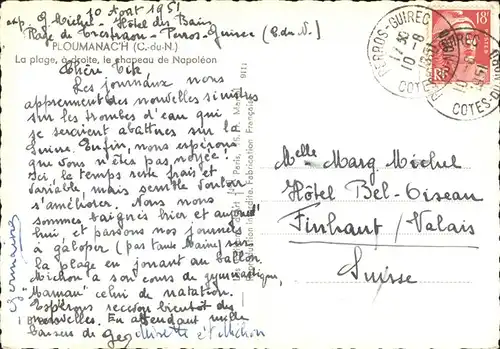 10 Août 1951
exp. G. Michel - Hôtel des Bains
Plage de Trestraou - Perros-Guirec (C. du N.)
PLOUMANAC'H (C.-du-N.)
La plage, à droite, le chapeau de Napoléon
Chère
Les journaux nous
apprennent des nouvelles sinistres
sur les trombes d'eau qui
se seraient abattues sur la
Suisse. Enfin, nous espérons
que vous n'êtes pas noyée!
Ici, le temps reste frais et
variable, mais semble vouloir
s'améliorer. Nous nous
sommes baignés hier et aujourd'
hui et passons nos journées
à galoper (par
sur
la plage en jouant au ballon.
Michou a son cours de gymnastique,
"Maman" celui de natation.
Espérons recevoir bientôt des
nouvelles. En attendant mille
baisers de Geg
et Michou
Germaine
1118
Paris
Reproduction interdite. Fabrication Française
18F
RF
PERROS-GUIREC
COTES-DU-NORD
PERROS-GUIREC
COTES-DU-NORD
Melle Marg. Michel
Hôtel Bel-Oiseau
Finhaut / Valais
Suisse